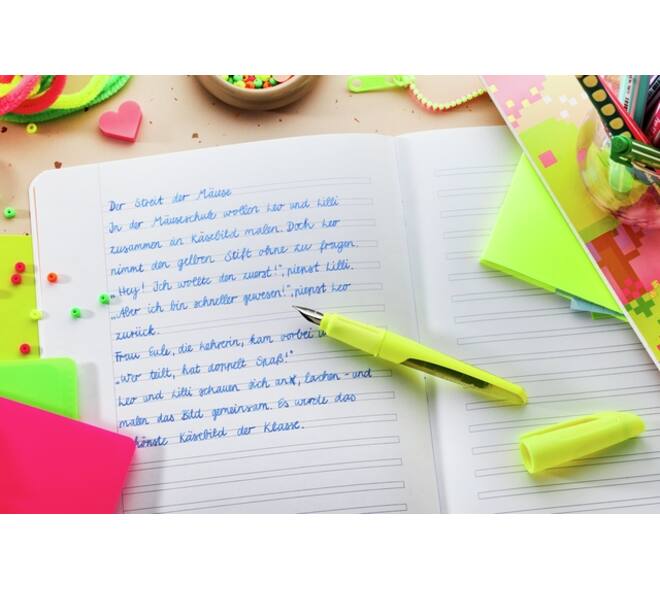 Der Streit der Mäuse
In der Mäuseschule wollen Leo und Lilli
zusammen ein Käsebild malen. Doch Leo
nimmt den gelben Stift ohne zu fragen.
„Hey! Ich wollte den zuerst!“, piepst Lilli.
„Aber ich bin schneller gewesen!“, piepst Leo
zurück.
Frau Eule, die Lehrerin, kam vorbei
„Wer teilt, hat doppelt Spaß!“
Leo und Lilli schauen sich an, lachen – und
malen das Bild gemeinsam. Es wurde das
Käsebild der Klasse.